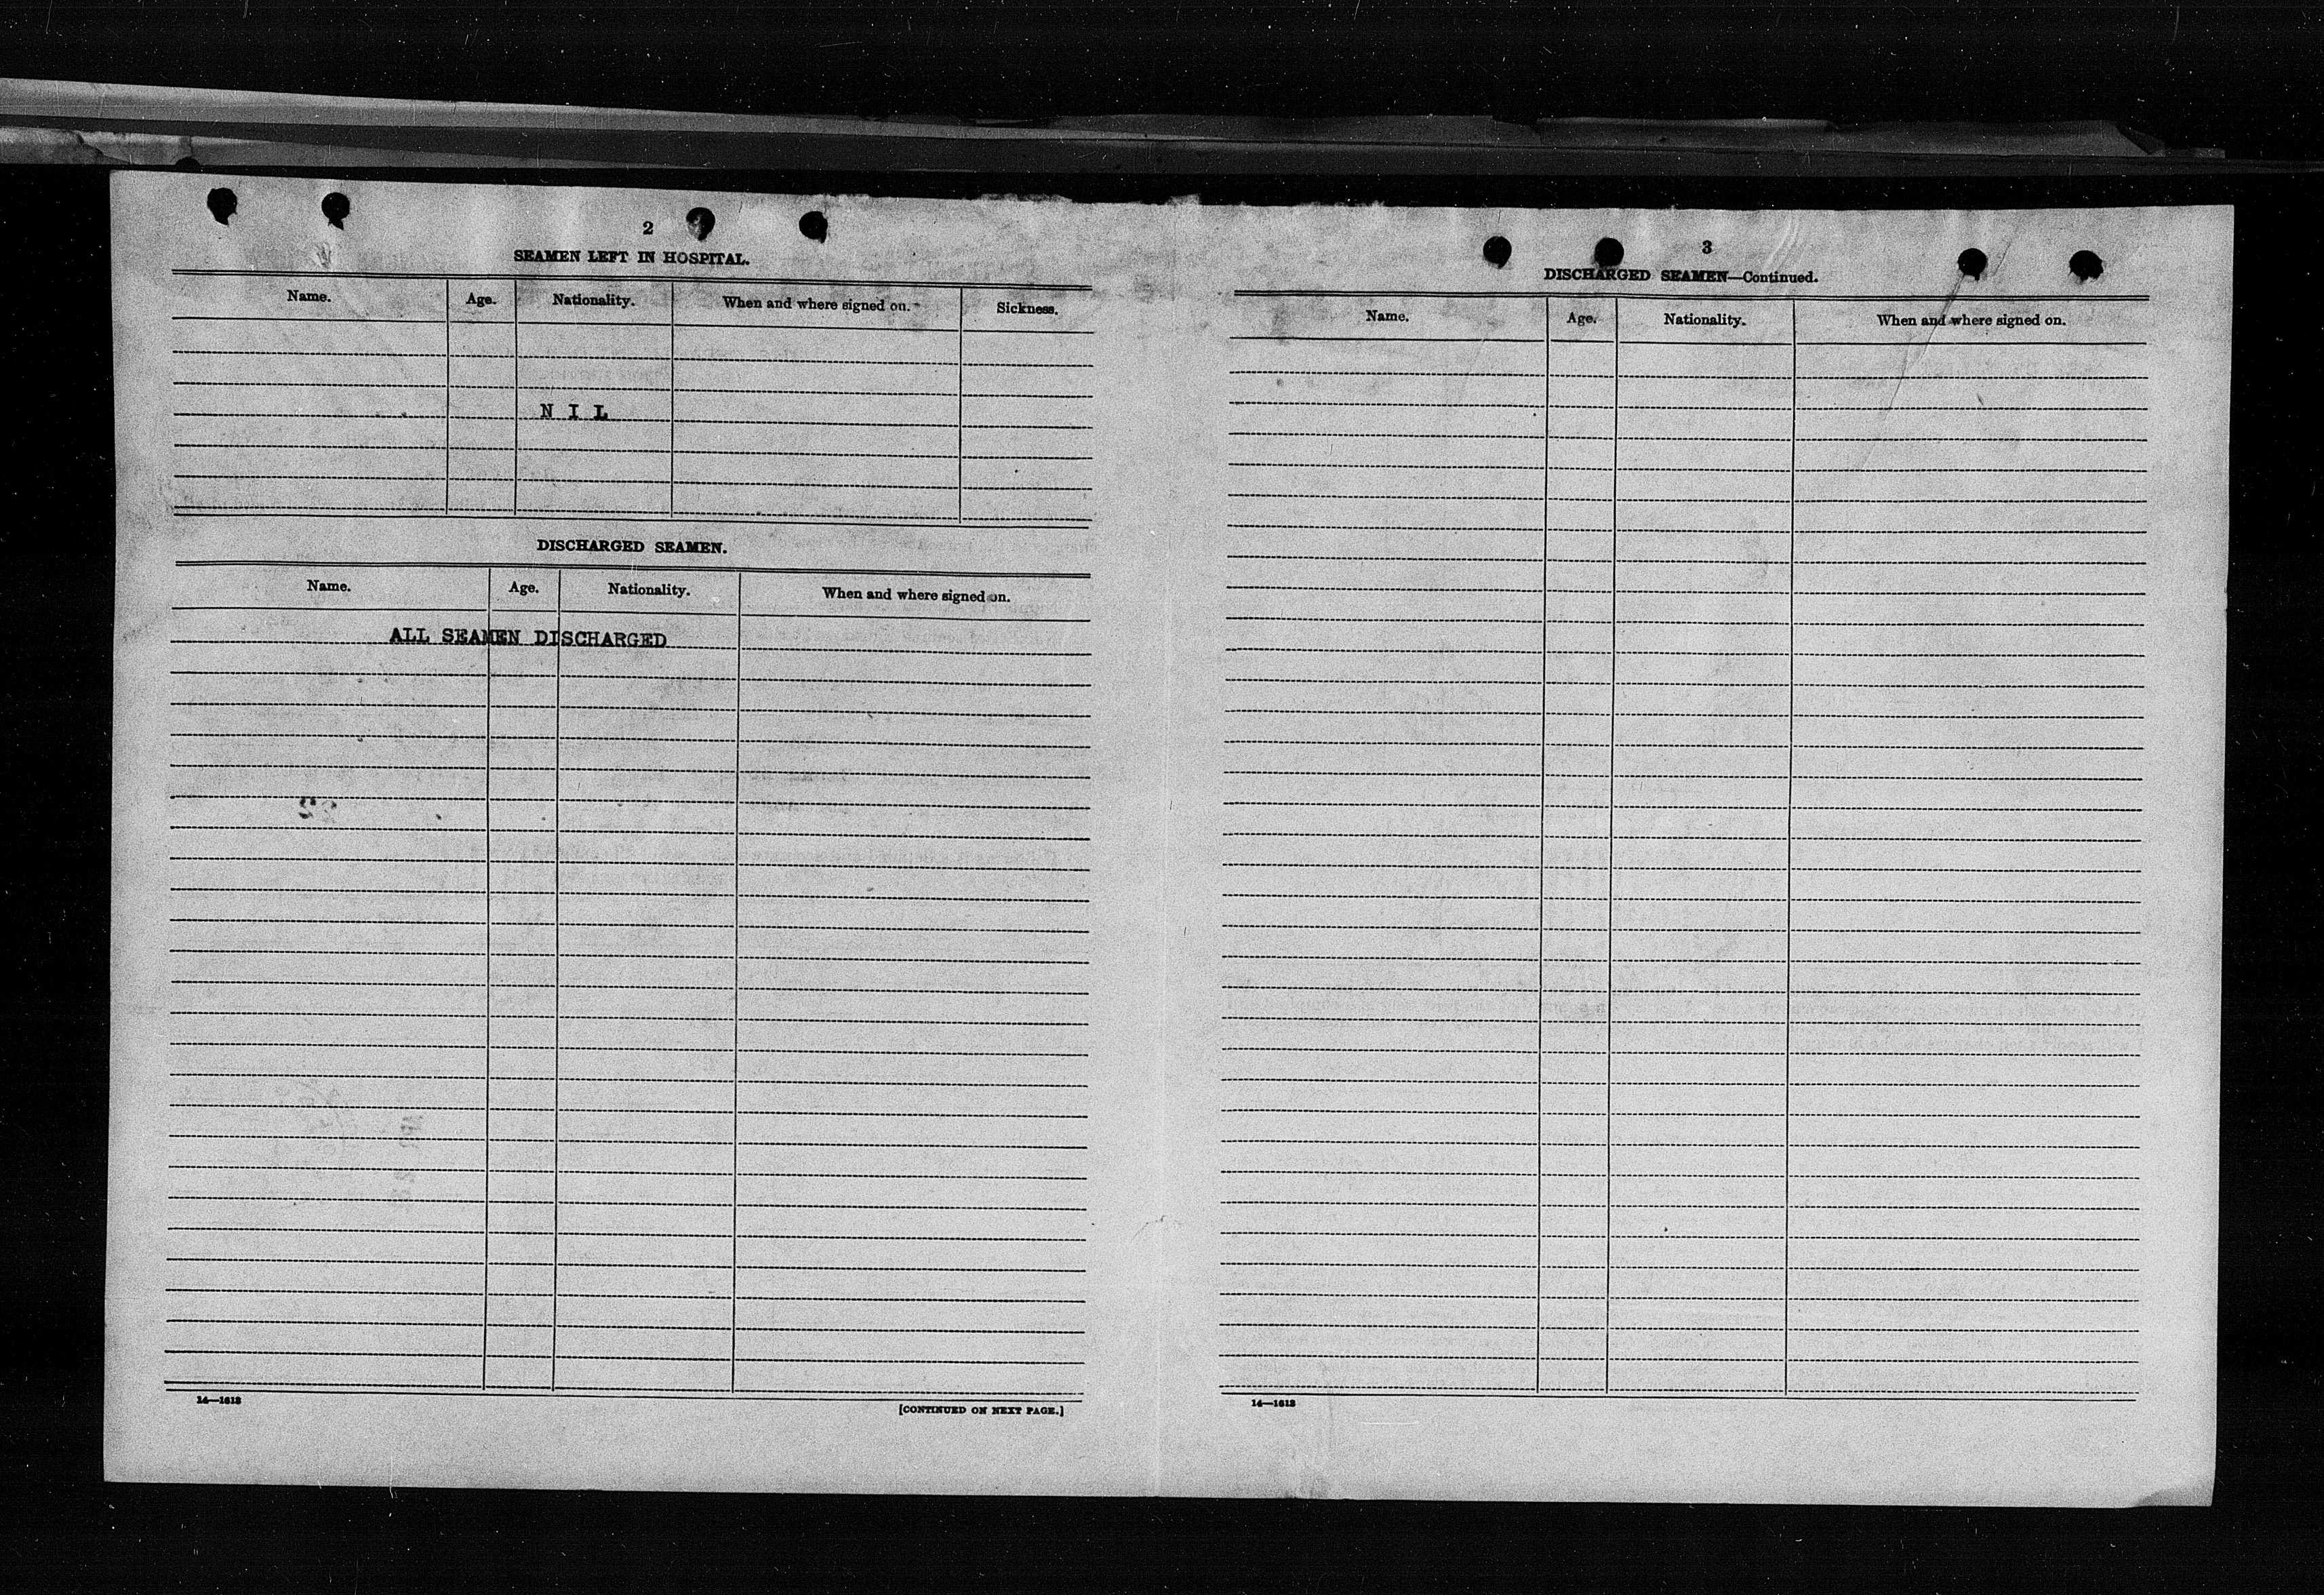 2
SEAMEN LEFT IN HOSPITAL.
Name. Age. Nationality. When and where signed on. Sickness.
N I L
DISCHARGED SEAMEN.
Name. Age. Nationality. When and where signed on.
ALL SEAMEN DISCHARGED
14—1613
[CONTINUED ON NEXT PAGE.]
3
DISCHARGED SEAMEN—Continued.
Name. Age. Nationality. When and where signed on.
14—1613